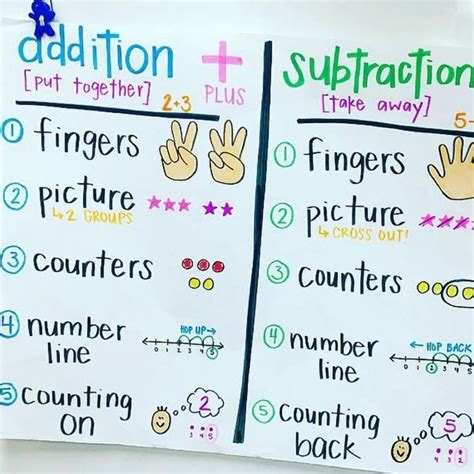 addition +
[put together] 2+3 PLUS
① fingers
② picture
↳ 2 GROUPS
③ counters
④ number
line
HOP UP→
0 1 2 3 4 5
⑤ counting
on
2
3 4 5
subtraction
[take away] 5-
① fingers
② picture
↳ CROSS OUT!
③ counters
④ number
line
← HOP BACK
0 1 2 3 4 5
⑤ counting
back
5
4 3 2